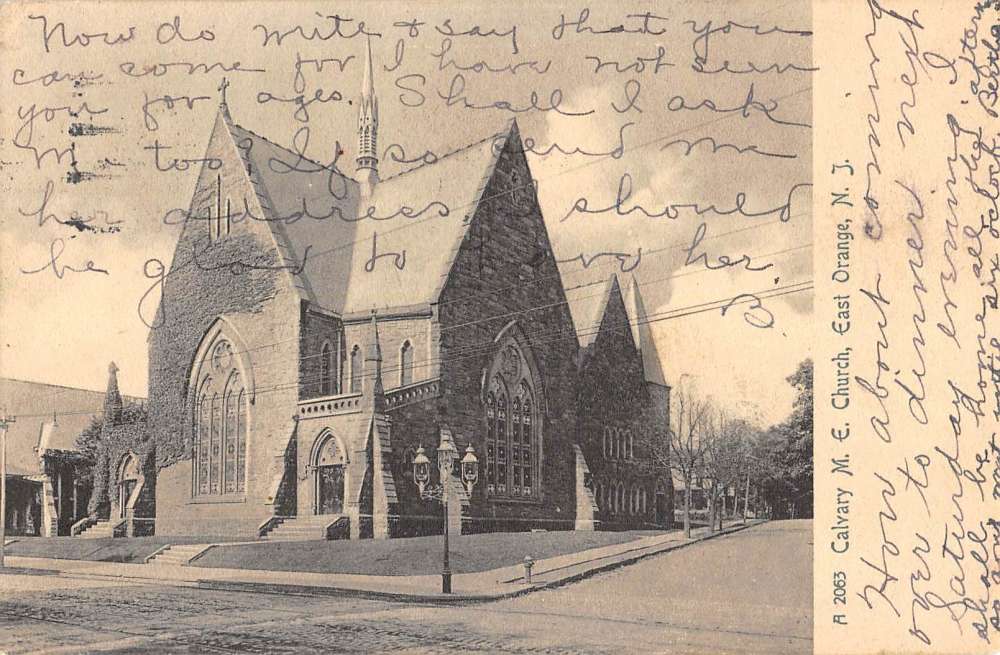 A 2063 Calvary M. E. Church, East Orange, N. J.
How about coming
over to dinner next
Saturday evening, I
shall be home all the after
noon until six o'clock Bertha.
Now do write + say that you
can come for I have not seen
you for ages. Shall I ask
too? If so send me
her address. I should
be glad to have her,
B